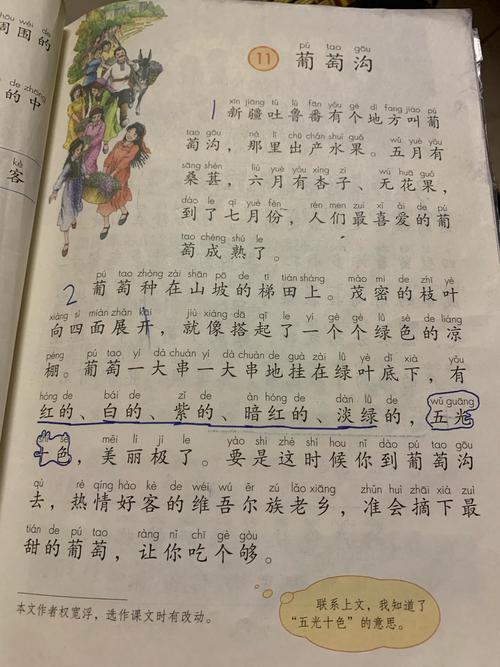 周围的
de zhōng
的中
kè
客
11
pú tao gōu
葡萄沟
1
xīn jiāng tǔ lǔ fān yǒu gè dì fang jiào pú
新疆吐鲁番有个地方叫葡
tao gōu nà li chū chǎn shuǐ guǒ wǔ yuè yǒu
萄沟，那里出产水果。五月有
sāng shèn liù yuè yǒu xìng zi wú huā guǒ
桑葚，六月有杏子、无花果，
dào le qī yuè fèn rén men zuì xǐ ài de pú
到了七月份，人们最喜爱的葡
tao chéng shú le
萄成熟了。
2
pú tao zhòng zài shān pō de tī tián shàng mào mì de zhī yè
葡萄种在山坡的梯田上。茂密的枝叶
xiàng sì miàn zhǎn kāi jiù xiàng dā qǐ le yí gè gè lǜ sè de liáng
向四面展开，就像搭起了一个个绿色的凉
péng pú tao yí dà chuàn yí dà chuàn de guà zài lǜ yè dǐ xià yǒu
棚。葡萄一大串一大串地挂在绿叶底下，有
hóng de bái de zǐ de àn hóng de dàn lǜ de wǔ guāng
红的、白的、紫的、暗红的、淡绿的，五光
shí sè měi lì jí le yào shi zhè shí hou nǐ dào pú tao gōu
十色，美丽极了。要是这时候你到葡萄沟
qù rè qíng hào kè de wéi wú ěr zú lǎo xiāng zhǔn huì zhāi xià zuì
去，热情好客的维吾尔族老乡，准会摘下最
tián de pú tao ràng nǐ chī gè gòu
甜的葡萄，让你吃个够。
本文作者权宽浮，选作课文时有改动。
联系上文，我知道了
“五光十色”的意思。